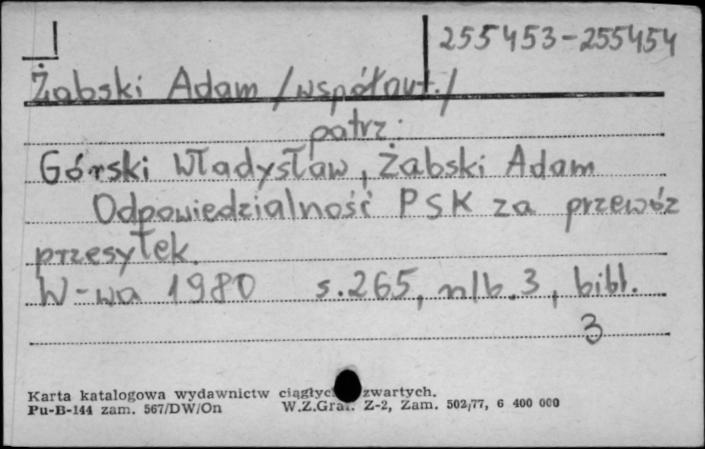 255453-255454
Żabski Adam /współaut./
patrz:
Górski Władysław, Żabski Adam
Odpowiedzialność PSK za przewóz
przesyłek.
W-wa 1980 s.265, nlb.3, bibl.
3
Karta katalogowa wydawnictw zwartych.
Pu-B-144 zam. 567/DW/On W.Z.Graf. Z-2, Zam. 502/77, 6 400 000